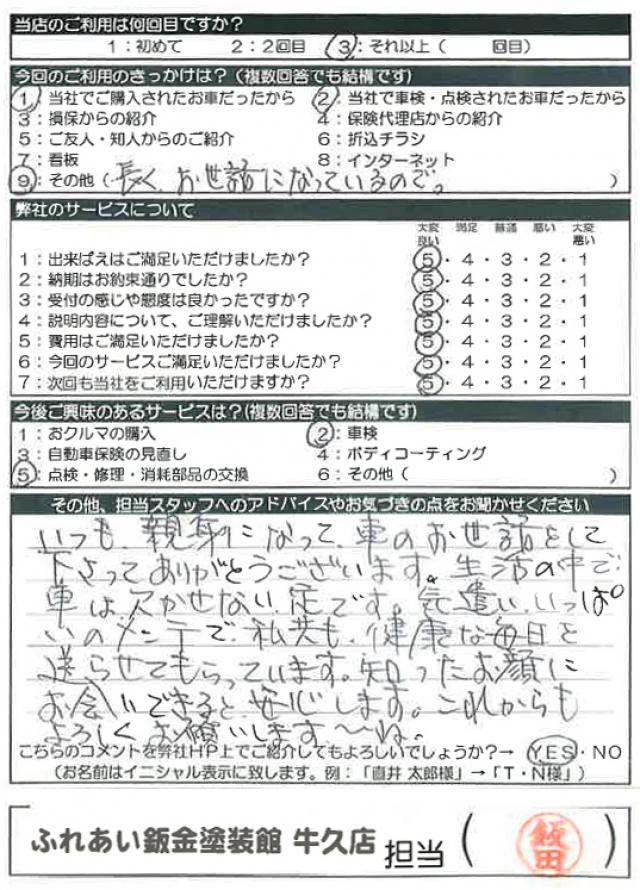 当店のご利用は何回目ですか?
1:初めて 2:2回目 3:それ以上( 回目)
今回のご利用のきっかけは?(複数回答でも結構です)
1:当社でご購入されたお車だったから 2:当社で車検・点検されたお車だったから
3:損保からの紹介 4:保険代理店からの紹介
5:ご友人・知人からのご紹介 6:折込チラシ
7:看板 8:インターネット
9:その他(長く、お世話になっているので。)
弊社のサービスについて
大変良い 満足 普通 悪い 大変悪い
1:出来ばえはご満足いただけましたか? 5・4・3・2・1
2:納期はお約束通りでしたか? 5・4・3・2・1
3:受付の感じや態度は良かったですか? 5・4・3・2・1
4:説明内容について、ご理解いただけましたか? 5・4・3・2・1
5:費用はご満足いただけましたか? 5・4・3・2・1
6:今回のサービスご満足いただけましたか? 5・4・3・2・1
7:次回も当社をご利用いただけますか? 5・4・3・2・1
今後ご興味のあるサービスは?(複数回答でも結構です)
1:おクルマの購入 2:車検
3:自動車保険の見直し 4:ボディコーティング
5:点検・修理・消耗部品の交換 6:その他( )
その他、担当スタッフへのアドバイスやお気づきの点をお聞かせください
いつも、親身になって、車のお世話をして
下さってありがとうございます。生活の中で
車は欠かせない足です。気遣いいっぱ
いのメンテで、私共も、健康な毎日を
送らせてもらっています。知ったお顔に
お会いできると、安心します。これからも
よろしくお願いします〜ね。
こちらのコメントを弊社HP上でご紹介してもよろしいでしょうか?→ YES・NO
(お名前はイニシャル表示に致します。例:「直井 太郎様」→「T・N様」)
ふれあい鈑金塗装館 牛久店 担当( 飯田 )